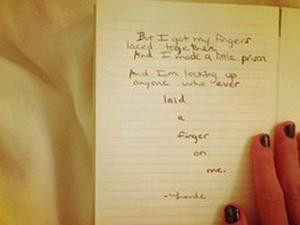 But I got my fingers
laced together
And I made a little prison
And I'm locking up
anyone who ever
laid
a
finger
on
me.
~Lorde